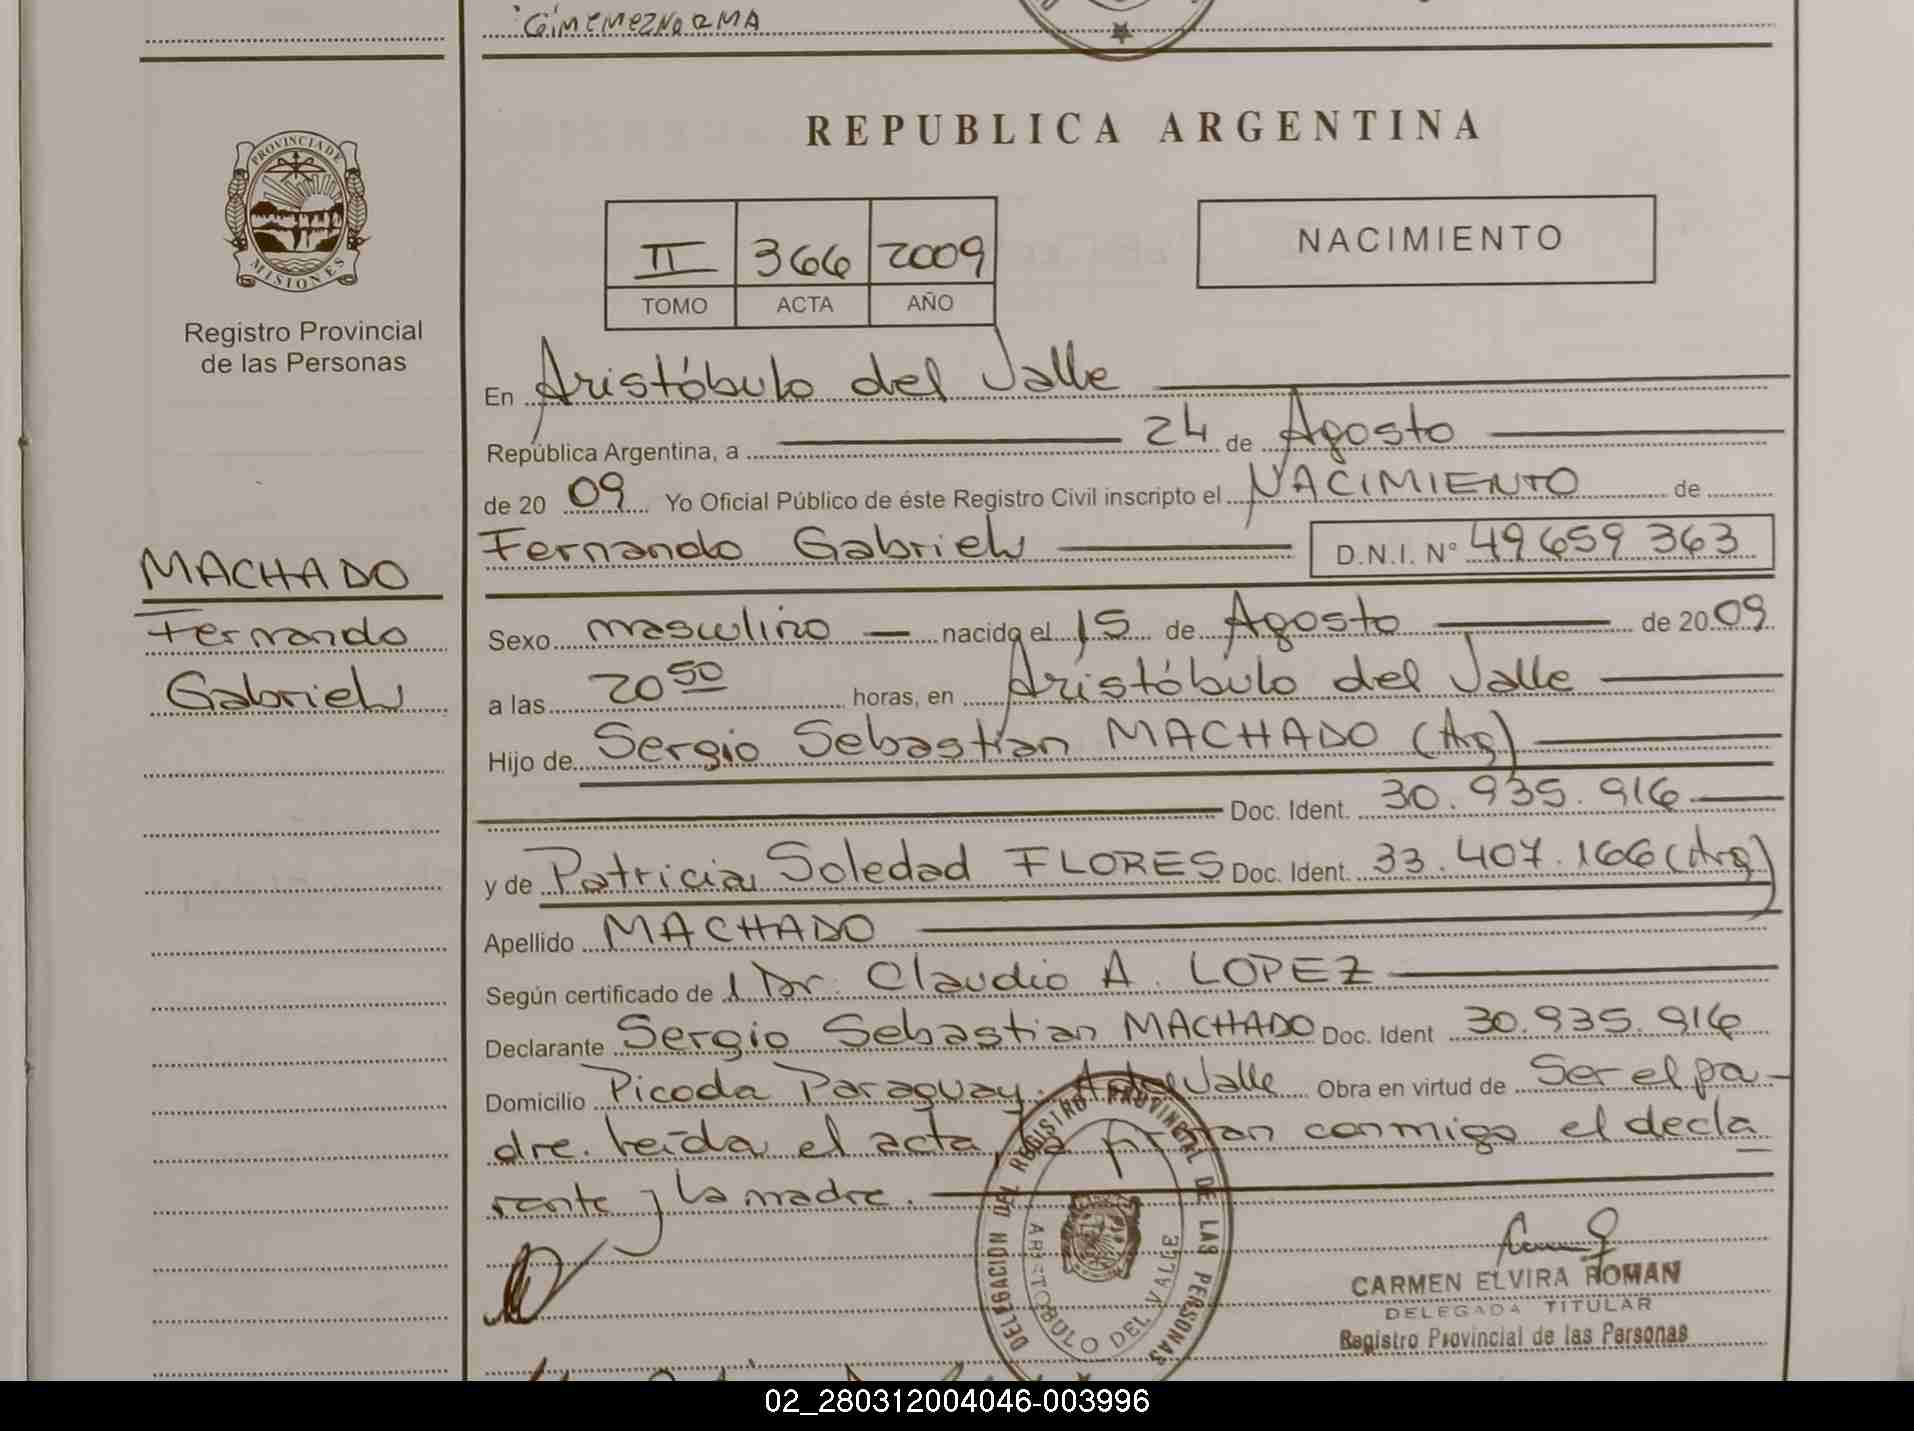 GimemezNorma
PROVINCIA DE
MISIONES
Registro Provincial
de las Personas
MACHADO
Fernando
Gabriel
REPUBLICA ARGENTINA
II 366 2009
TOMO ACTA AÑO
NACIMIENTO
En Aristóbulo del Valle
República Argentina, a 24 de Agosto
de 20 09 Yo Oficial Público de éste Registro Civil inscripto el NACIMIENTO de
Fernando Gabriel D.N.I. N° 49 659 363
Sexo masculino nacido el 15 de Agosto de 20 09
a las 20 50 horas, en Aristóbulo del Valle
Hijo de Sergio Sebastian MACHADO (Arg)
Doc. Ident. 30.935.916
y de Patricia Soledad FLORES Doc. Ident. 33.407.166 (Arg)
Apellido MACHADO
Según certificado de l Dr. Claudio A. LOPEZ
Declarante Sergio Sebastian MACHADO Doc. Ident 30.935.916
Domicilio Picada Paraguay. A del Valle Obra en virtud de Ser el pa-
dre. Leida el acta, la firman conmigo el decla
rante y la madre.
DELEGACION DEL REGISTRO PROVINCIAL DE LAS PERSONAS
ARISTOBULO DEL VALLE
CARMEN ELVIRA ROMAN
DELEGADA TITULAR
Registro Provincial de las Personas
02_280312004046-003996